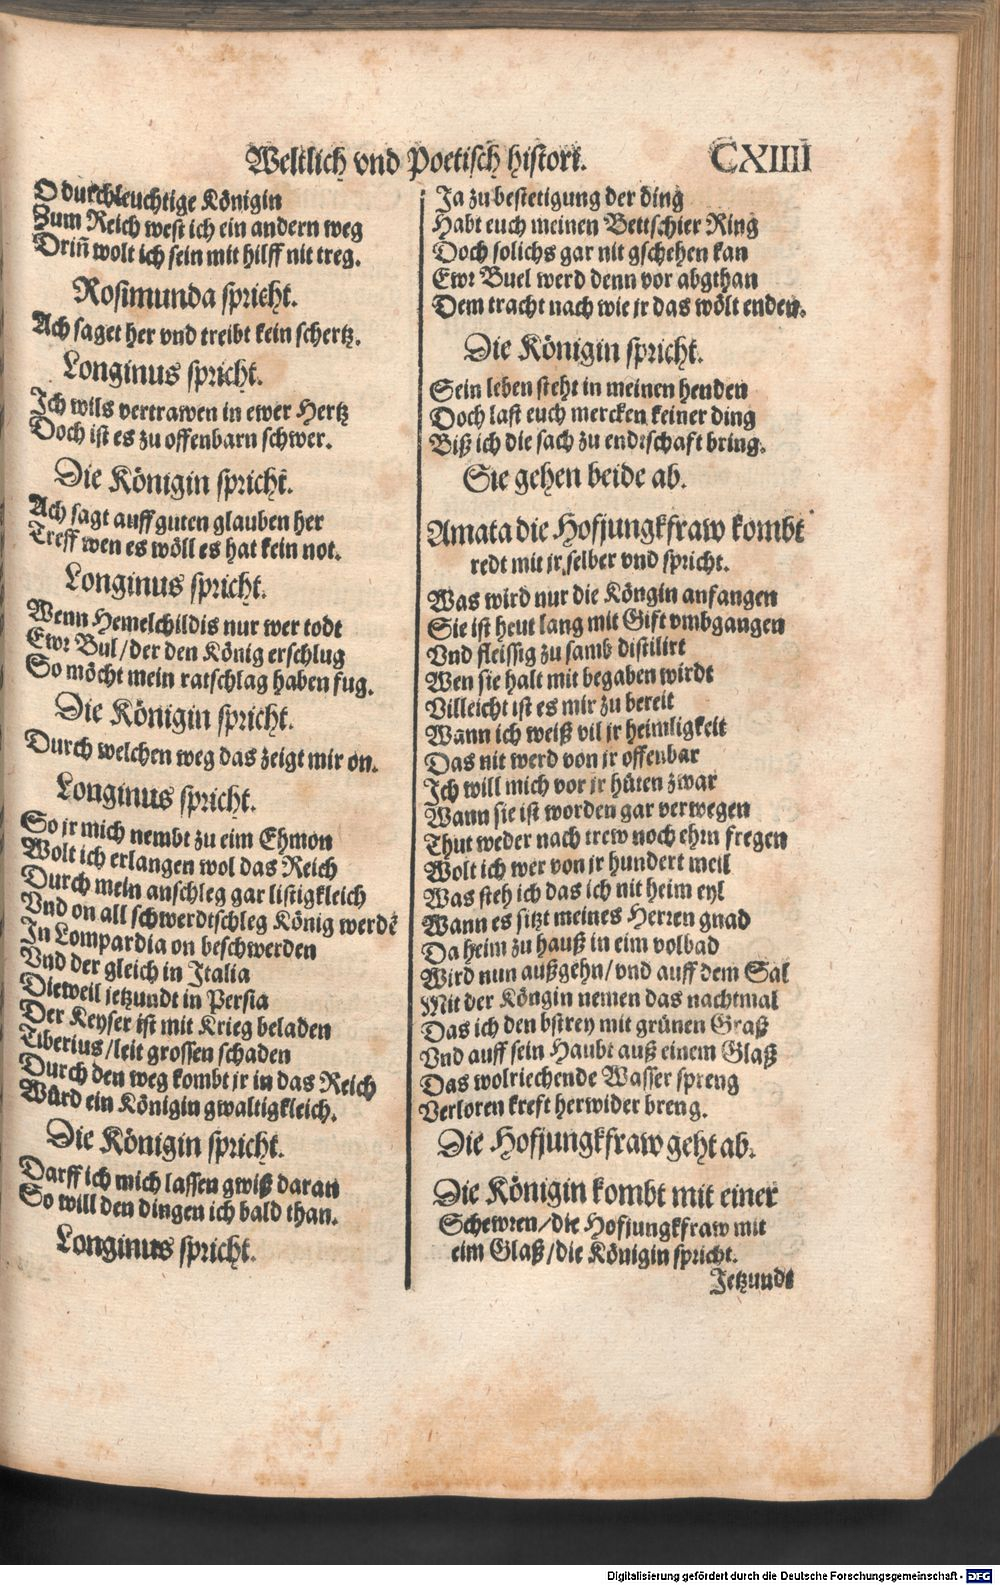 Weltlich vnd Poetisch histori.
CXIIII
O durchleuchtige Königin
Zum Reich west ich ein andern weg
Driñ wolt ich sein mit hilff nit treg.
Rosimunda spricht.
Ach saget her vnd treibt kein schertz.
Longinus spricht.
Ich wils vertrawen in ewer Hertz
Doch ist es zu offenbarn schwer.
Die Königin spricht.
Ach sagt auff guten glauben her
Treff wen es wöll es hat kein not.
Longinus spricht.
Wenn Hemelchildis nur wer todt
Ewr Bul/der den König erschlug
So möcht mein ratschlag haben fug.
Die Königin spricht.
Durch welchen weg das zeigt mir on.
Longinus spricht.
So jr mich nembt zu eim Ehmon
Wolt ich erlangen wol das Reich
Durch mein anschleg gar listigkleich
Vnd on all schwerdtschleg König werdē
In Lompardia on beschwerden
Vnd der gleich in Italia
Dieweil jetzundt in Persia
Der Keyser ist mit Krieg beladen
Tiberius/leit grossen schaden
Durch den weg kombt jr in das Reich
Würd ein Königin gwaltigkleich.
Die Königin spricht.
Darff ich mich lassen gwiß daran
So will den dingen ich bald than.
Longinus spricht.
Ja zu bestetigung der ding
Habt euch meinen Bettschier Ring
Doch solichs gar nit gschehen kan
Ewr Buel werd denn vor abgthan
Dem tracht nach wie jr das wölt enden.
Die Königin spricht.
Sein leben steht in meinen henden
Doch last euch mercken keiner ding
Biß ich die sach zu endrschaft bring.
Sie gehen beide ab.
Amata die Hofjungkfraw kombt
redt mit jr selber vnd spricht.
Was wird nur die Köngin anfangen
Sie ist heut lang mit Gift vmbgangen
Vnd fleissig zu samb distilirt
Wen sie halt mit begaben wirdt
Villeicht ist es mir zu bereit
Wann ich weiß vil jr heimligkeit
Das nit werd von jr offenbar
Ich will mich vor jr hüten zwar
Wann sie ist worden gar verwegen
Thut weder nach trew noch ehrn fregen
Wolt ich wer von jr hundert meil
Was steh ich das ich nit heim eyl
Wann es sitzt meines Herren gnad
Da heim zu hauß in eim volbad
Wird nun außgehn/vnd auff dem Sal
Mit der Köngin nemen das nachtmal
Das ich den bstrey mit grünen Graß
Vnd auff sein Haubt auß einem Glaß
Das wolriechende Wasser spreng
Verloren kreft herwider breng.
Die Hofjungkfraw geht ab.
Die Königin kombt mit einer
Schewren/die Hofjungkfraw mit
eim Glaß/die Königin spricht.
Jetzundt
Digitalisierung gefördert durch die Deutsche Forschungsgemeinschaft - DFG